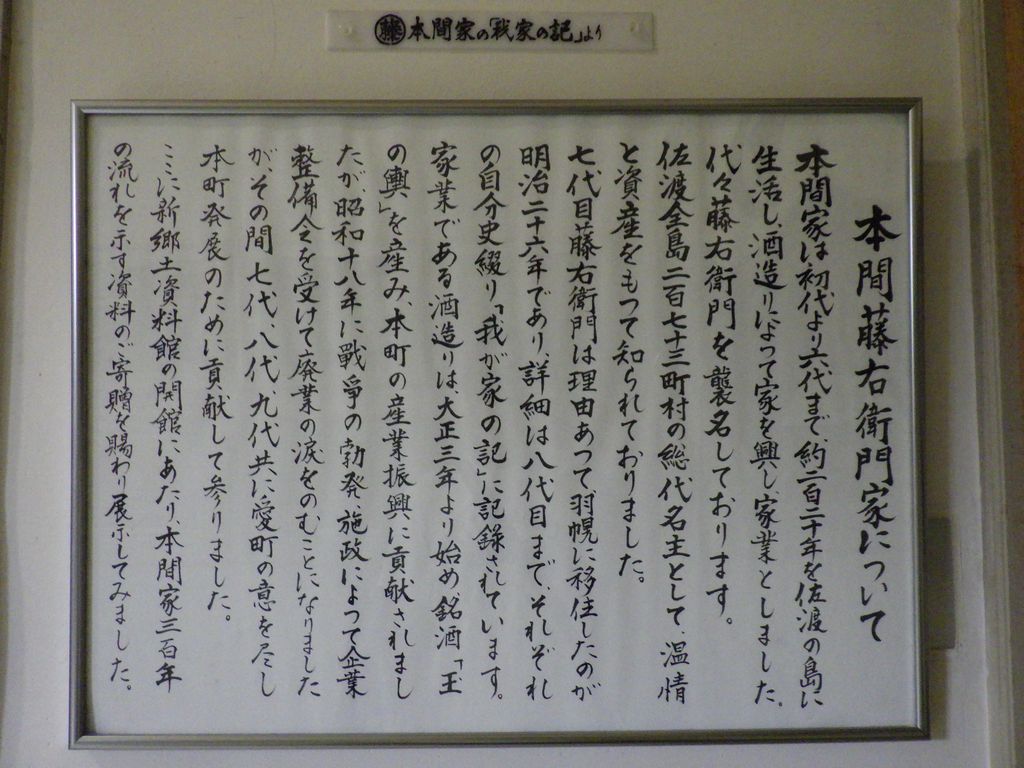 藤本間家の「我家の記」より
本間藤右衛門家について
本間家は初代より六代まで、約二百二十年を佐渡の島に
生活し、酒造りによって家を興し、家業としました。
代々藤右衛門を襲名しております。
佐渡全島二百七十三町村の総代名主として、温情
と資産をもって知られておりました。
七代目藤右衛門は理由あって羽幌に移住したのが
明治二十六年であり、詳細は八代目まで、それぞれ
の自分史綴り「我が家の記」に記録されています。
家業である酒造りは大正三年より始め、銘酒「王
の輿」を産み、本町の産業振興に貢献されまし
たが、昭和十八年に戰爭の勃発、施政によって企業
整備令を受けて廃業の涙をのむことになりました
が、その間七代、八代、九代共に愛町の意を尽し
本町発展のために貢献して参りました。
ここに新郷土資料館の開館にあたり、本間家三百年
の流れを示す資料のご寄贈を賜わり展示してみました。